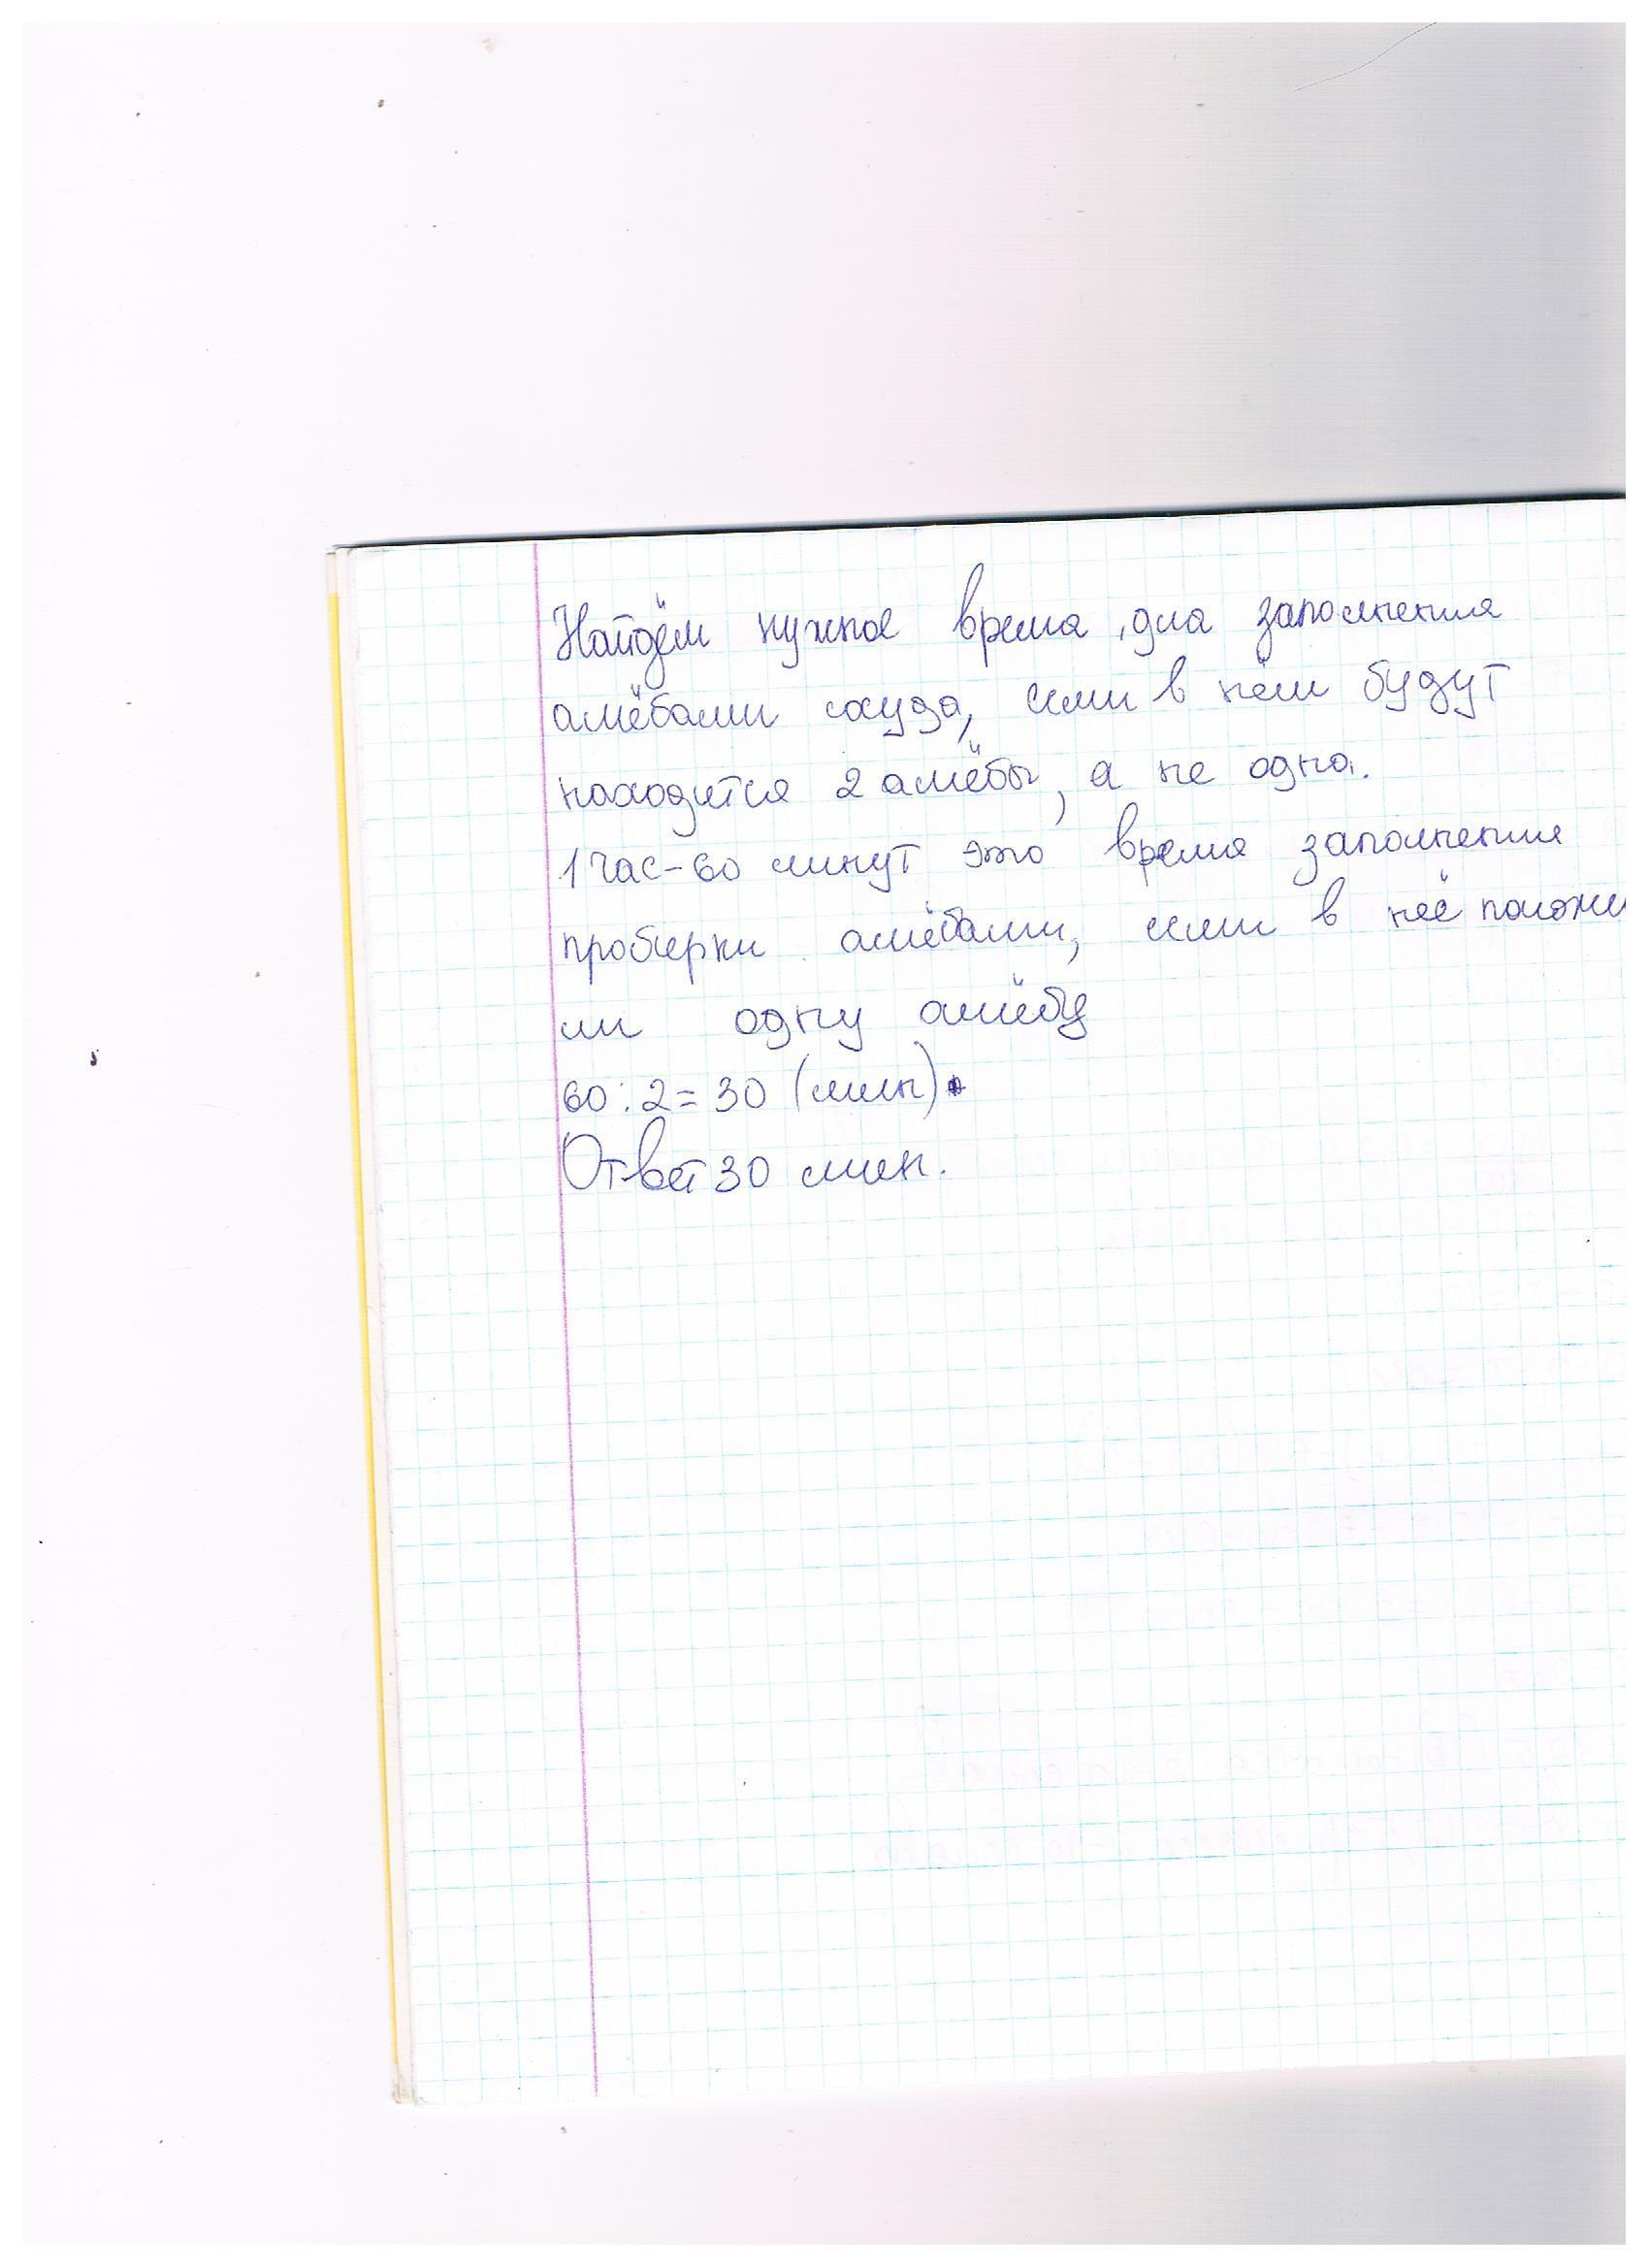 Найдём нужное время, для заполнения
амёбами сосуда, если в нём будут
находится 2 амёбы, а не одна.
1 час - 60 минут это время заполнения
пробирки амёбами, если в неё положи
ли одну амёбу
60 : 2 = 30 (мин).
Ответ 30 мин.